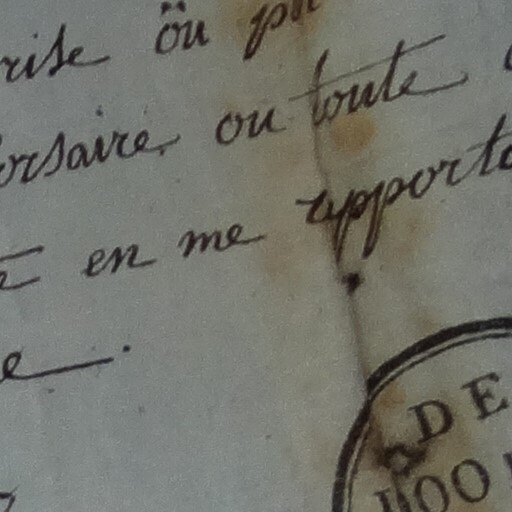 rise öu
orsaire, ou toute
en me apporta
e
DE